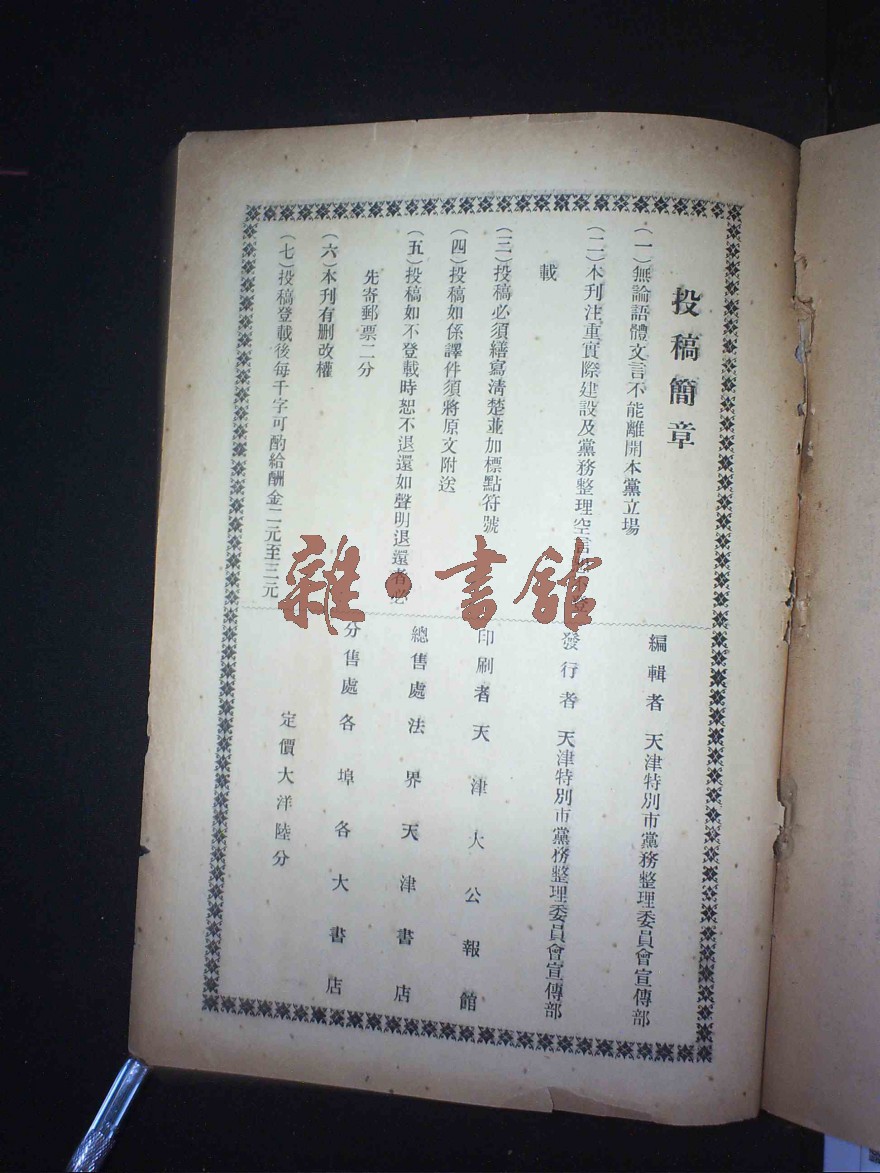 投稿簡章
(一)無論語體文言不能離開本黨立場
(二)本刊注重實際建設及黨務整理空言
載
(三)投稿必須繕寫清楚並加標點符號
(四)投稿如係譯件須將原文附送
(五)投稿如不登載時恕不退還如聲明退還者必
先寄郵票二分
(六)本刊有刪改權
(七)投稿登載後每千字可酌給酬金二元至三元
編輯者 天津特別市黨務整理委員會宣傳部
發行者 天津特別市黨務整理委員會宣傳部
印刷者天津大公報館
總售處法界天津書店
分售處各埠各大書店
定價大洋陸分
雜·書館